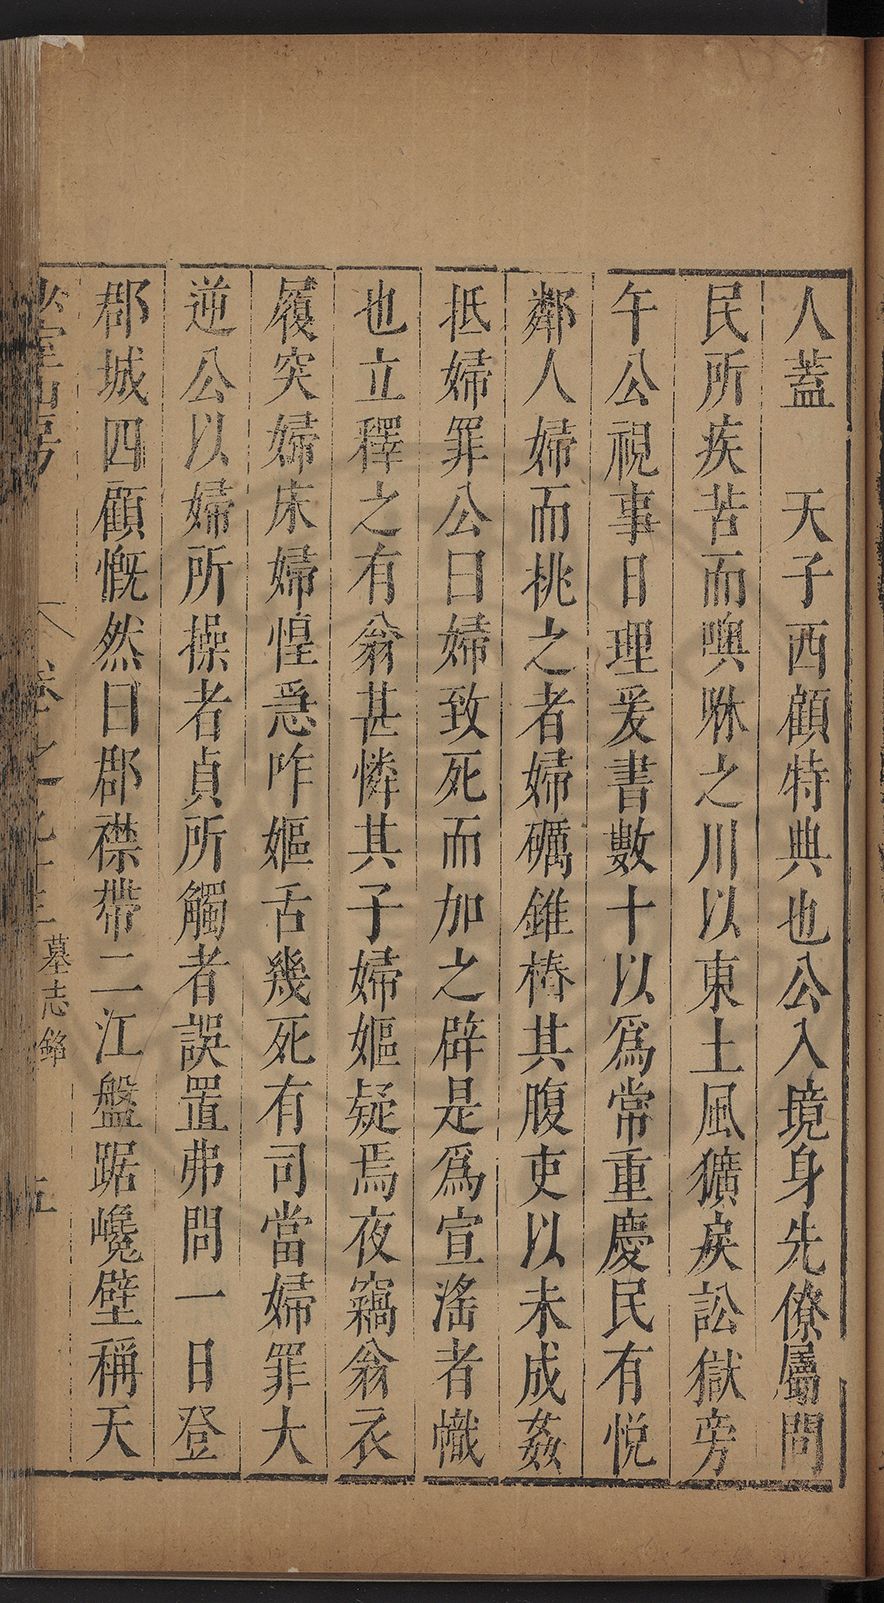 人蓋　天子西顧特典也公入境身先僚屬問
民所疾苦而噢咻之川以東土風獷戾訟獄旁
午公視事日理爰書數十以爲常重慶民有悅
鄰人婦而挑之者婦礪錐樁其腹吏以未成姦
抵婦罪公曰婦致死而加之辟是爲宣滛者幟
也立釋之有翁甚憐其子婦嫗疑焉夜竊翁衣
履突婦床婦惶急咋嫗舌幾死有司當婦罪大
逆公以婦所操者貞所觸者誤置弗問一日登
郡城四顧慨然曰郡襟帶二江盤踞巉壁稱天
山房　卷之九十三　墓志銘　五